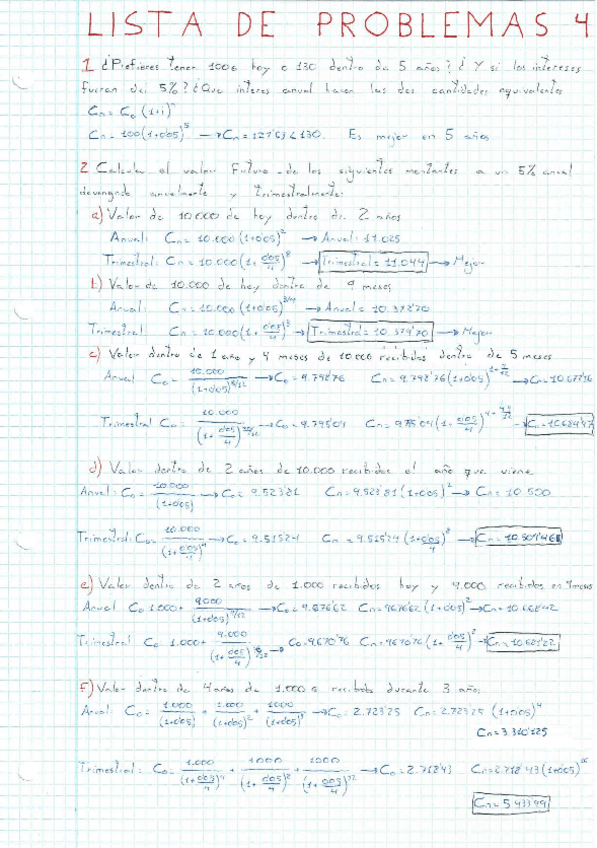 LISTA DE PROBLEMAS 4
1 ¿Prefieres tener 100€ hoy o 130 dentro de 5 años? ¿Y si los intereses
fueran del 5%? ¿Que interes anual hacen las dos cantidades equivalentes
Cn = Co (1+i)^n
Cn = 100(1+0'05)^5 → Cn = 127'63 < 130. Es mejor en 5 años
2 Calcula el valor futuro de los siguientes montantes a un 5% anual
devengando anualmente y trimestralmente:
a) Valor de 10.000 de hoy dentro de 2 años
Anual: Cn = 10.000 (1+0'05)^2 → Anual: 11.025
Trimestral: Cn = 10.000 (1+ 0'05/4)^8 → Trimestral = 11.044 → Mejor
b) Valor de 10.000 de hoy dentro de 9 meses
Anual: Cn = 10.000 (1+0'05)^3/4 → Anual = 10.372'70
Trimestral Cn = 10.000 (1+ 0'05/4)^3 → Trimestral = 10.379'70 → Mejor
c) Valor dentro de 1 año y 4 meses de 10.000 recibidos dentro de 5 meses
Anual Co = 10.000/(1+0'05)^5/12 → Co = 9.798'76 Cn = 9.798'76 (1+0'05) → Cn = 10.677'16
Trimestral Co = 10.000/(1+ 0'05/4) → Co = 9.795'04 Cn = 9795'04 (1+ 0'05/4) → Cn = 10.684'47
d) Valor dentro de 2 años de 10.000 recibidos el año que viene
Anual: Co = 10.000/(1+0'05) → Co = 9.523'81 Cn = 9.523'81 (1+0'05)^2 → Cn = 10.500
Trimestral: Co = 10.000/(1+ 0'05/4)^4 → Co = 9.515'24 Cn = 9.515'24 (1+ 0'05/4)^8 → Cn = 10.509'46
e) Valor dentro de 2 años de 1.000 recibidos hoy y 9.000 recibidos en 9 meses
Anual Co 1.000+ 9000/(1+0'05)^9/12 → Co = 9.676'62 Cn = 9676'62 (1+0'05)^2 → Cn = 10.668'42
Trimestral Co = 1.000+ 9.000/(1+ 0'05/4) → Co = 9.670'76 Cn = 9670'76 (1+ 0'05/4) → Cn = 10.681'22
f) Valor dentro de 4 años de 1.000 € recibido durante 3 años
Anual: Co = 1.000/(1+0'05) + 1.000/(1+0'05)^2 + 1000/(1+0'05)^3 → Co = 2.723'25 Cn = 2.723'25 (1+0'05)^4
Cn = 3.310'125
Trimestral: Co = 1.000/(1+ 0'05/4)^4 + 1000/(1+ 0'05/4)^2 + 1000/(1+ 0'05/4)^12 → Co = 2.718'43 Cn = 2.718'43 (1+0'05)^16
Cn = 5933'99